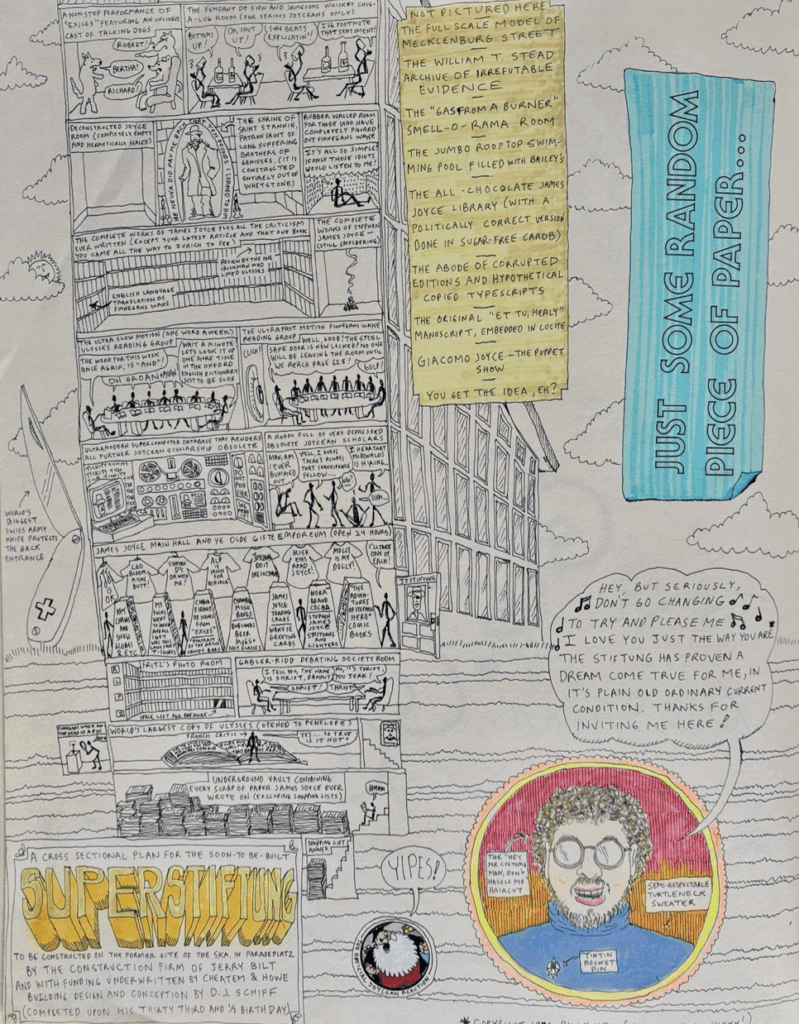 A NONSTOP PERFORMANCE OF
"EXILES" FEATURING AN UNLIKELY
CAST OF TALKING DOGS
ROBERT!
BERTHA!
RICHARD!
THE FENDANT DE SION AND JAMESONS WHISKEY CHUG-
A-LUG ROOM (FOR SERIOUS JOYCEANS ONLY)
BOTTOMS
UP!
OH, SHUT
UP!
SURE BEATS
EXPLICATIN'!
I'LL FOOTNOTE
THAT SENTIMENT!
DECONSTRUCTED JOYCE
ROOM (COMPLETELY EMPTY
AND HERMETICALLY SEALED)
THE SHRINE OF
SAINT STANNIE,
PATRON SAINT OF
LONG SUFFERING
BROTHERS OF
GENIUSES. (IT IS
CONSTRUCTED
ENTIRELY OUT OF
WHETSTONE)
RUBBER WALLED ROOM
FOR THOSE WHO HAVE
COMPLETELY FIGURED
OUT FINNEGANS WAKE
IT'S ALL SO SIMPLE!
IF ONLY THOSE IDIOTS
WOULD LISTEN TO ME!
THE COMPLETE WORKS OF JAMES JOYCE PLUS ALL THE CRITICISM
EVER WRITTEN (EXCEPT YOUR LATEST ARTICLE AND THAT ONE BOOK
YOU CAME ALL THE WAY TO ZURICH TO SEE)
REVIEW BY THE ONE
IRISHMAN WHO
LIKED ULYSSES
ENGLISH LANGUAGE
TRANSLATION OF
FINNEGANS WAKE
THE COMPLETE
WORKS OF STEPHEN
JAMES JOYCE —
(STILL SMOLDERING)
THE ULTRA SLOW MOTION (ONE WORD A WEEK)
ULYSSES READING GROUP
THE WORD FOR THIS WEEK
ONCE AGAIN, IS "AND"!
WAIT A MINUTE
LET'S LOOK IT UP
ONE MORE TIME
IN THE OXFORD
ENGLISH DICTIONARY
JUST TO BE SURE
THE ULTRA FAST MOTION FINNEGANS WAKE
READING GROUP
CLICK!
WELL, GOOD! THE STEEL
SAFE DOOR IS NOW LOCKED! NO ONE
WILL BE LEAVING THE ROOM UNTIL
WE REACH PAGE 628!
GULP!
ULTRAMODERN SUPERCOMPUTER DATABASE THAT RENDERS
ALL FURTHER JOYCEAN SCHOLARSHIP OBSOLETE
A ROOM FULL OF VERY DEPRESSED
OBSOLETE JOYCEAN SCHOLARS
MAN, AM
I EVER
BUMMED
OUT
WELL, I GUESS
THERE'S ALWAYS
THAT SHAKESPEARE
FELLOW...
I HEAR THAT
McDONALDS
IS HIRING...
WORLD'S
BIGGEST
SWISS ARMY
KNIFE PROTECTS
THE BACK
ENTRANCE
JAMES JOYCE MAIN HALL AND YE OLDE GIFTE EMPOREUM (OPEN 24 HOURS)
MOLLY
IS MY
DOLLY!
I'LL TAKE
ONE OF
EACH!
JAMES
JOYCE
TRADING
CARDS
WAKESE
GREETING
CARDS
THE
ADVEN-
TURES
OF STEPHEN
HERO"
COMIC
BOOKS
FRITZ'S PHOTO ROOM
SPACE LEFT FOR ARTWORK
GABLER-KIDD DEBATING SOCIETY ROOM
I TELL YOU, THE NAME
IS SHRIFT, DAMMIT!
NO, IT'S THRIFT,
YOU FREAK!
SHRIFT!
THRIFT!
WORLD'S LARGEST COPY OF ULYSSES (OPENED TO PENELOPE)
FRENCH CRITIC →
"YES... SO TRUE
IS IT NOT"
UNDERGROUND VAULT CONTAINING
EVERY SCRAP OF PAPER JAMES JOYCE EVER
WROTE ON (EXCLUDING SHOPPING LISTS)
SHOPPING LIST
ANNEX
A CROSS SECTIONAL PLAN FOR THE SOON-TO BE-BUILT
SUPERSTIFTUNG
TO BE CONSTRUCTED ON THE FORMER SITE OF THE SKA. IN PARADEPLATZ
BY THE CONSTRUCTION FIRM OF JERRY BILT
AND WITH FUNDING UNDERWRITTEN BY CHEATEM & HOWE
BUILDING DESIGN AND CONCEPTION BY D.J. SCHIFF
(COMPLETED UPON HIS THIRTY THIRD AND ⅓ BIRTHDAY)
NOT PICTURED HERE
THE FULL SCALE MODEL OF
MECKLENBURG STREET
THE WILLIAM T. STEAD
ARCHIVE OF IRREFUTABLE
EVIDENCE
THE "GAS FROM A BURNER"
SMELL-O-RAMA ROOM
THE JUMBO ROOFTOP SWIM-
MING POOL FILLED WITH BAILEY'S
THE ALL-CHOCOLATE JAMES
JOYCE LIBRARY (WITH A
POLITICALLY CORRECT VERSION
DONE IN SUGAR-FREE CAROB)
THE ABODE OF CORRUPTED
EDITIONS AND HYPOTHETICAL
COPIED TYPESCRIPTS
THE ORIGINAL "ET TU, HEALY"
MANUSCRIPT, EMBEDDED IN LUCITE
GIACOMO JOYCE - THE PUPPET
SHOW
YOU GET THE IDEA, EH?
JUST SOME RANDOM
PIECE OF PAPER...
HEY, BUT SERIOUSLY,
DON'T GO CHANGING
TO TRY AND PLEASE ME
I LOVE YOU JUST THE WAY YOU ARE
THE STIFTUNG HAS PROVEN A
DREAM COME TRUE FOR ME, IN
IT'S PLAIN OLD ORDINARY CURRENT
CONDITION. THANKS FOR
INVITING ME HERE!
THE "HEY,
MR CUSTOMS
MAN, DON'T
HASSLE ME"
HAIRCUT
SEMI-RESPECTABLE
TURTLENECK
SWEATER
TINTIN
ROCKET
PIN
YIPES!
THE OFFICIAL JOYCEAN REACTION